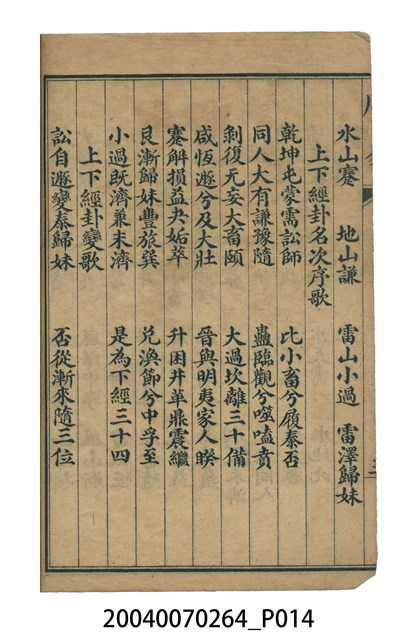 水山蹇　地山謙　雷山小過　雷澤歸妹
上下經卦名次序歌
乾坤屯蒙需訟師　比小畜兮履泰否
同人大有謙豫隨　蠱臨觀兮噬嗑賁
剝復无妄大畜頤　大過坎離三十備
咸恆遯兮及大壯　晉與明夷家人睽
蹇解損益夬姤萃　升困井革鼎震繼
艮漸歸妹豐旅巽　兌渙節兮中孚至
小過既濟兼未濟　是為下經三十四
上下經卦變歌
訟自遯變泰歸妹　否從漸來隨三位
20040070264_P014